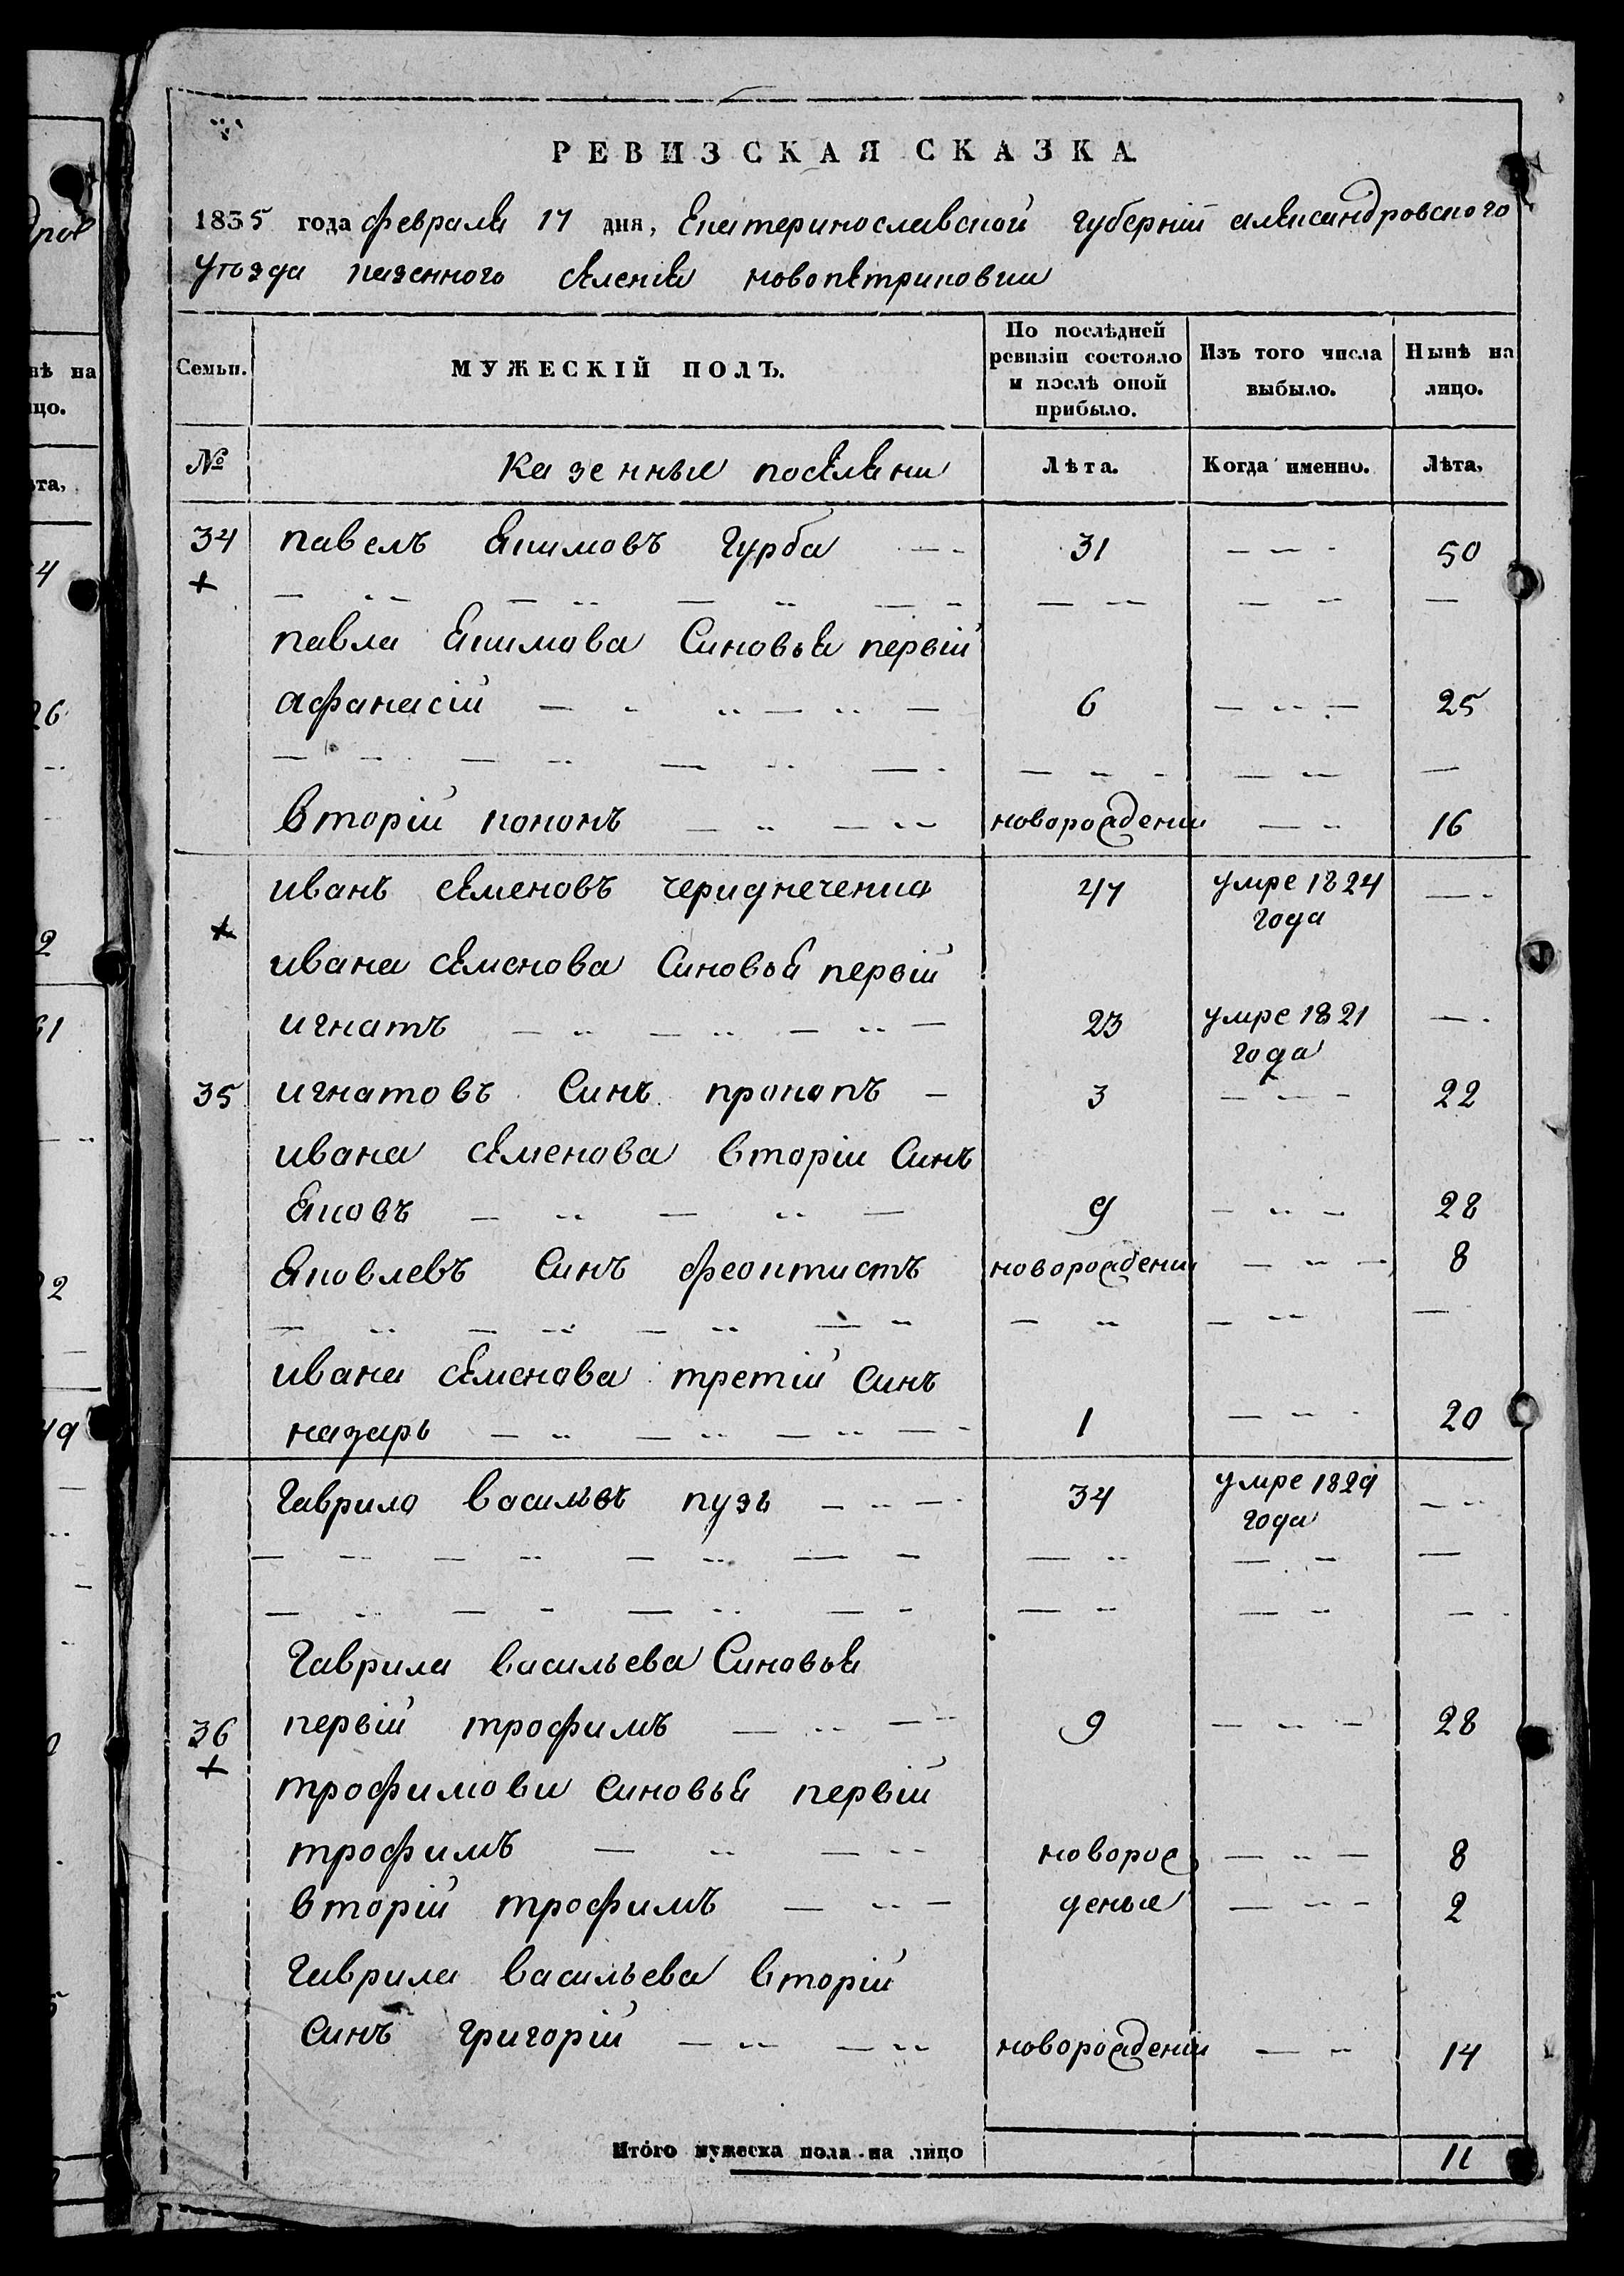 РЕВИЗСКАЯ СКАЗКА.
1835 года февраля 17 дня, Екатеринославской губерніи александровского
уѣзда казенного селенія новопетриковки
Семьи.
МУЖЕСКІЙ ПОЛЪ.
По послѣдней ревизіи состояло и послѣ оной прибыло.
Изъ того числа выбыло.
Нынѣ на лицо.
№ казенные поселяни Лѣта. Когда именно. Лѣта.
34 павелъ Якимовъ гурба 31 50
павла Якимова Синовья первій
афанасій 6 25
вторій кононъ новорожденни 16
иванъ семеновъ чередниченко 47 умре 1824
года
ивана семенова Синовья первій
игнатъ 23 умре 1821
года
35 игнатовъ Синъ прокопъ 3 22
ивана семенова вторіи Синъ
Яковъ 9 28
Яковлевъ Синъ феоктистъ новорожденни 8
ивана семенова третій синъ
назаръ 1 20
гаврило васильвъ пузь 34 умре 1829
года
гаврила васильева Синовья
36 первій трофимъ 9 28
трофимови синовья первій
трофимъ новорож 8
вторій трофимъ деные 2
гаврила васильева вторій
синъ григорій новорожденіи 14
Итого мужеска пола на лицо 11
нѣ на
цо.
ѣта,
4
26
2
61
2
49